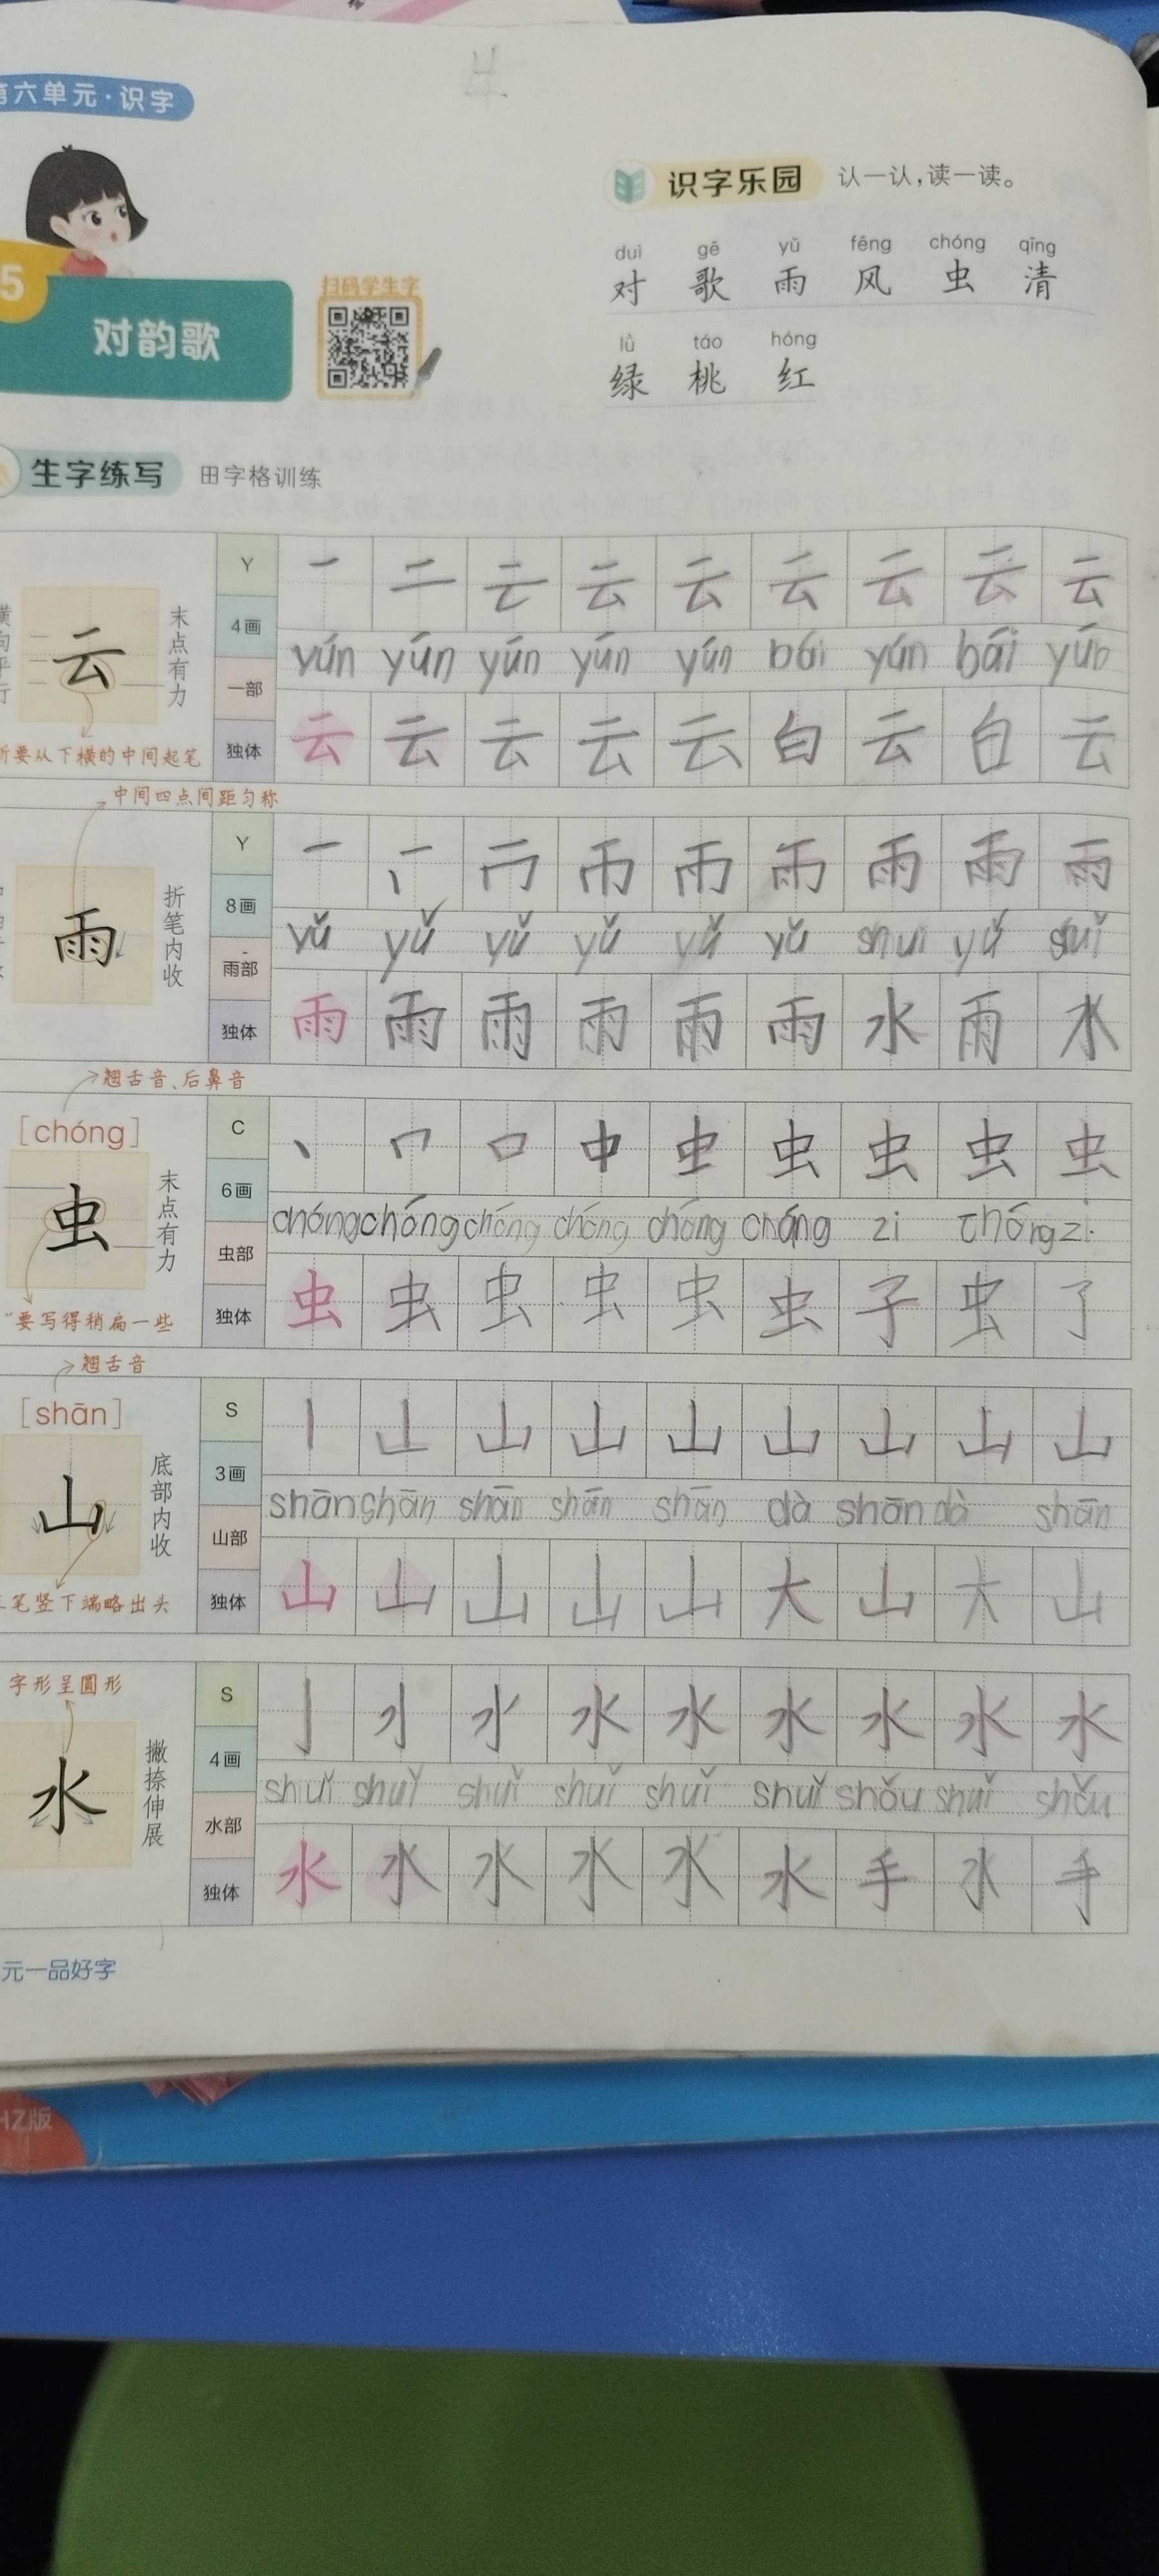 第六单元·识字
识字乐园 认一认,读一读。
duì gē yǔ fēng chóng qīng
对 歌 雨 风 虫 清
lǜ táo hóng
绿 桃 红
5
对韵歌
扫码学生字
生字练写 田字格训练
横向平行
云
末点有力
折要从下横的中间起笔
Y
4画
一部
独体
一 二 云 云 云 云 云 云
yún yún yún yún yún bái yún bái yún
云 云 云 云 云 白 云 白 云
中间四点间距匀称
雨
折笔内收
Y
8画
雨部
独体
一 雨 雨 雨 雨
yǔ yǔ yǔ yǔ yǔ yǔ shui yǔ shuǐ
雨 雨 雨 雨 雨 雨 水 雨 水
翘舌音、后鼻音
[chóng]
虫
末点有力
要写得稍扁一些
C
6画
虫部
独体
丶 口 中 虫 虫 虫 虫 虫
chóng chóng chóng chóng chóng cháng zi chóng zi
虫 虫 虫 虫 虫 虫 子 虫 了
翘舌音
[shān]
山
底部内收
笔竖下端略出头
S
3画
山部
独体
丨 山 山 山 山 山 山 山
shān shān shān shān shān dà shān dà shān
山 山 山 山 山 大 山 大 山
字形呈圆形
水
撇捺伸展
S
4画
水部
独体
亅 水 水 水 水 水 水
shuǐ shuǐ shuǐ shuǐ shuǐ shuǐ shǒu shuǐ shǒu
水 水 水 水 水 水 手 水 手
元一品好字
HZ版